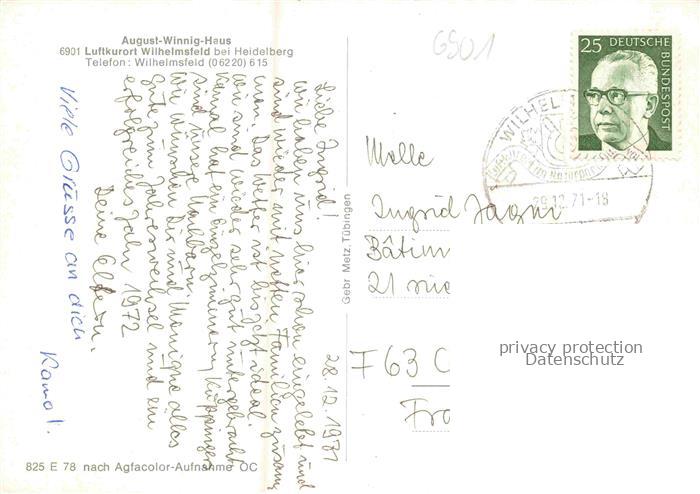 August-Winnig-Haus
6901 Luftkurort Wilhelmsfeld bei Heidelberg
Telefon: Wilhelmsfeld (06220) 615
6901
25 DEUTSCHE BUNDESPOST
WILHEL
29.12.71-18
28.12.1971
Liebe Ingrid!
Wir haben uns hier schon eingelebt und
sind wieder mit netten Familien zusam
men. Das Wetter ist bis jetzt ideal.
Wir sind wieder sehr gut untergebracht
Kamal hat ein Einzelzimmer. Küppingers
sind unsere Nachbarn.
Wir wünschen Dir und Monique alles
Gute zum Jahreswechsel und ein
erfolgreiches Jahr 1972
Deine Eltern.
Viele Grüsse an dich
Kamal.
Gebr. Metz, Tübingen
Melle
Ingrid
Bâtim
21 rue
F 63 C
Fra
privacy protection
Datenschutz
825 E 78 nach Agfacolor-Aufnahme OC